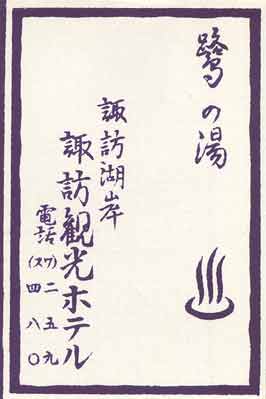 鷺の湯
諏訪湖岸
諏訪観光ホテル
電話(スワ)二五九
四八〇